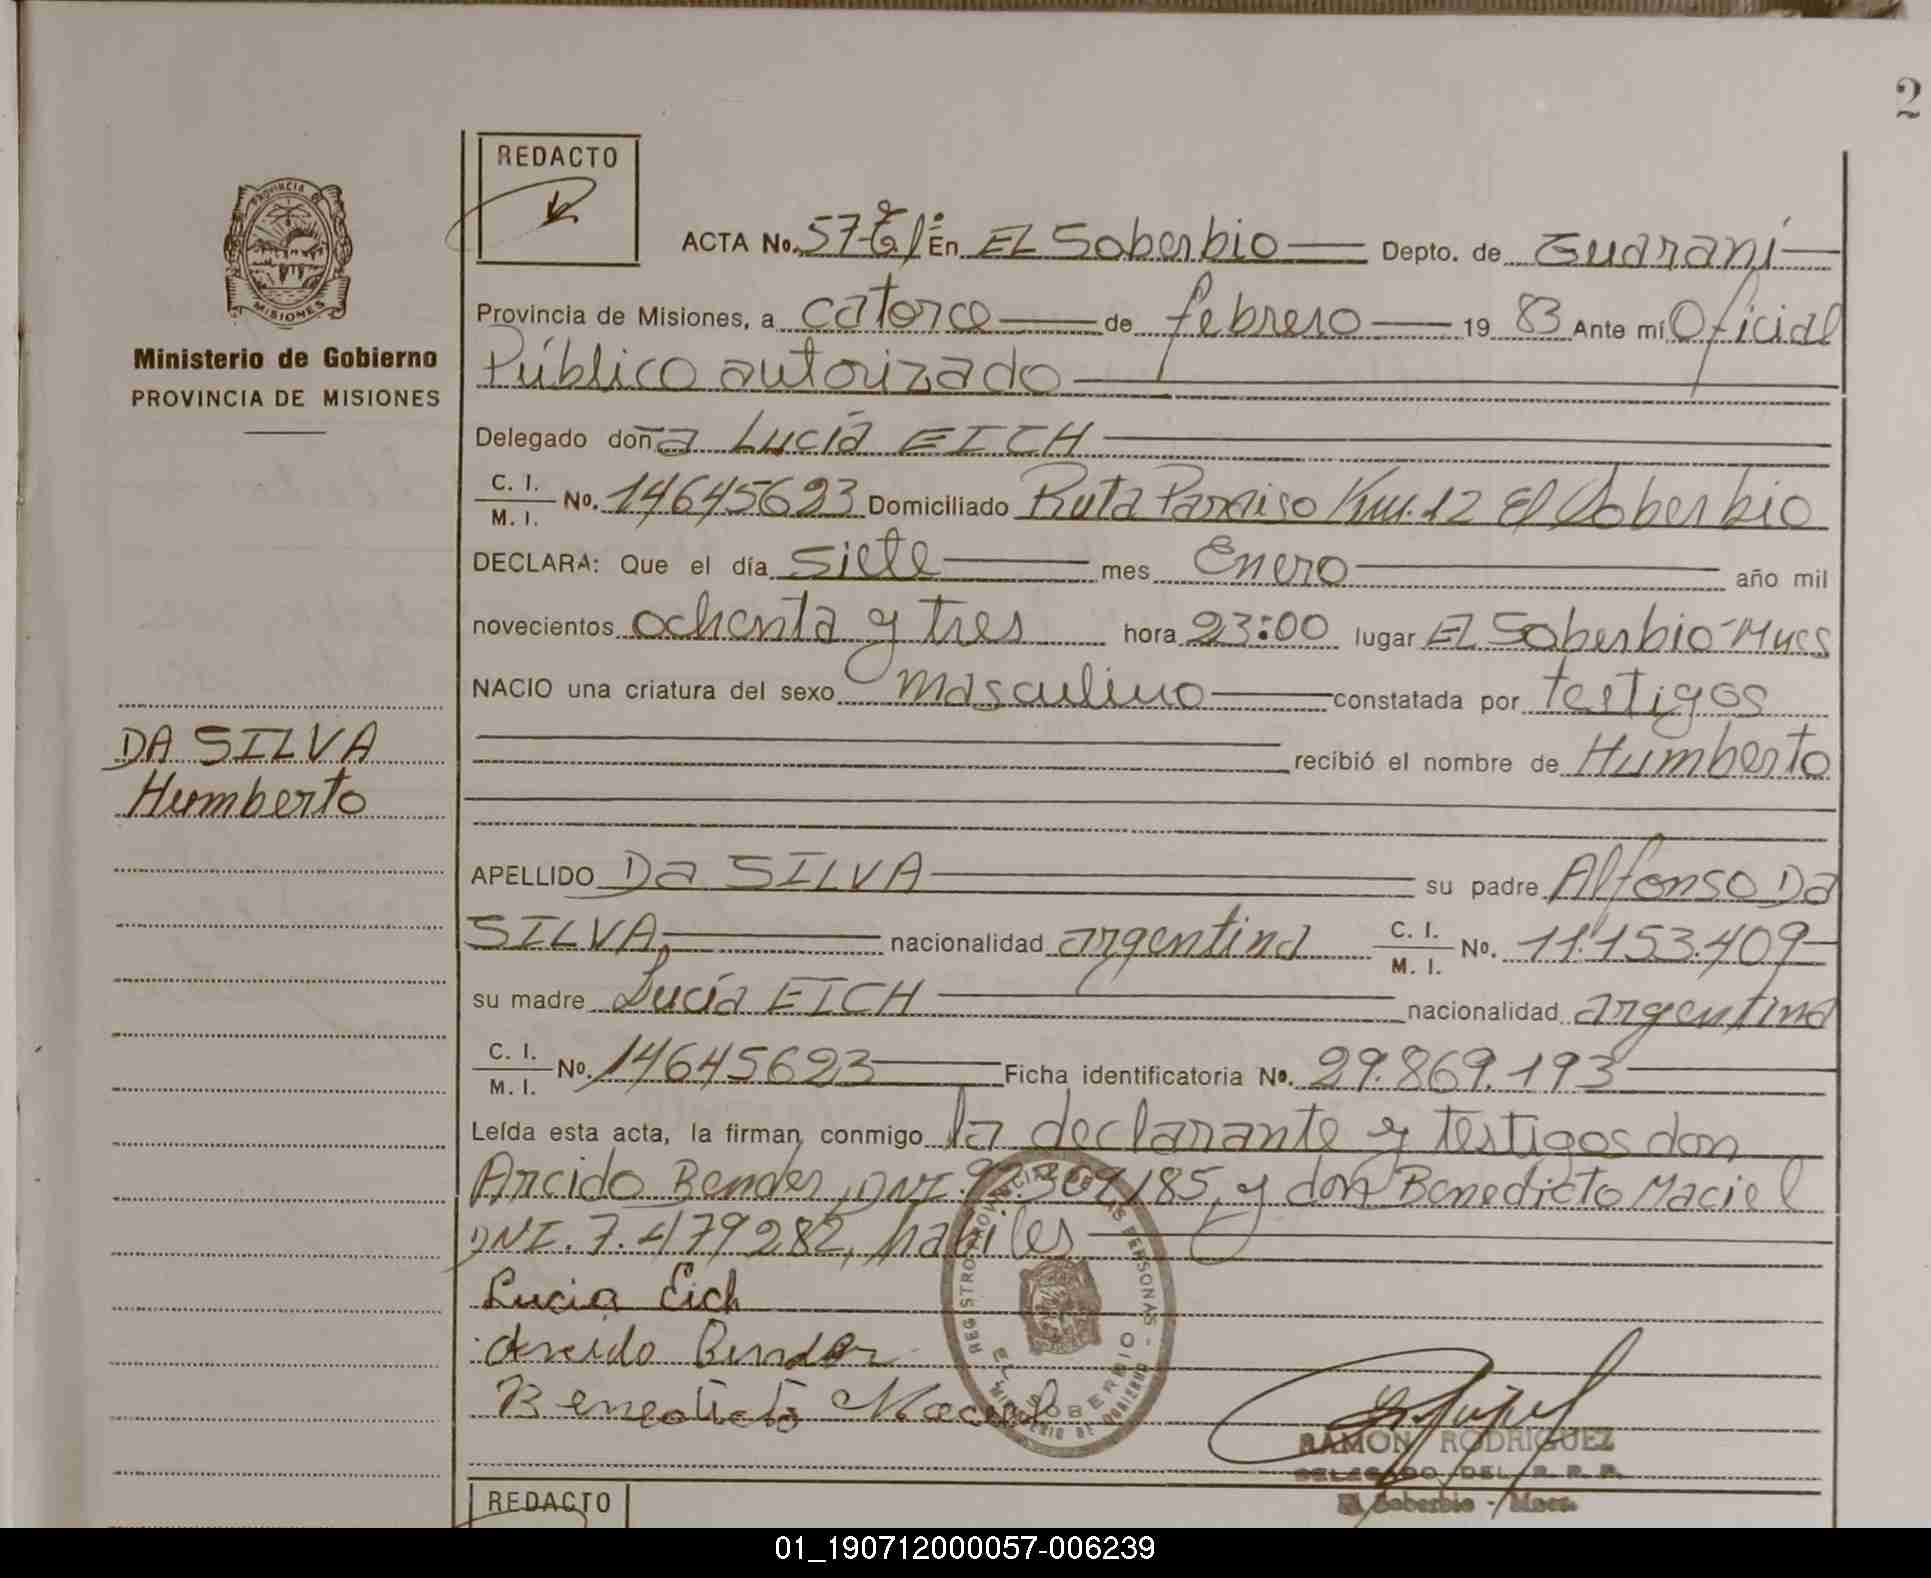 2
REDACTO
PROVINCIA
MISIONES
Ministerio de Gobierno
PROVINCIA DE MISIONES
ACTA No. 57 En EL Soberbio Depto. de Guaraní
Provincia de Misiones, a catorce de febrero 19 83 Ante mí Oficial
Público autorizado
Delegado doña Lucía EICH
C. I. / M. I. No. 14645623 Domiciliado Ruta Paraiso Km. 12 El Soberbio
DECLARA: Que el día siete mes Enero año mil
novecientos ochenta y tres hora 23:00 lugar EL Soberbio-Mnes
NACIO una criatura del sexo masculino constatada por testigos
recibió el nombre de Humberto
DA SILVA
Humberto
APELLIDO Da SILVA su padre Alfonso Da
SILVA, nacionalidad argentina C. I. / M. I. No. 11.153.409
su madre Lucía EICH nacionalidad argentina
C. I. / M. I. No. 14645623 Ficha identificatoria No. 29.869.193
Leída esta acta, la firman conmigo la declarante y testigos don
Arcido Bender, DNI. 185, y don Benedicto Maciel
DNI. 7.479282, habiles
Lucia Eich
Arcido Bender
Benedicto Maciel
REGISTRO PROVINCIAL DE LAS PERSONAS - MINISTERIO DE GOBIERNO
EL SOBERBIO
RAMON RODRIGUEZ
DELEGADO DEL R. P. P.
El Soberbio - Mnes.
REDACTO
01_190712000057-006239